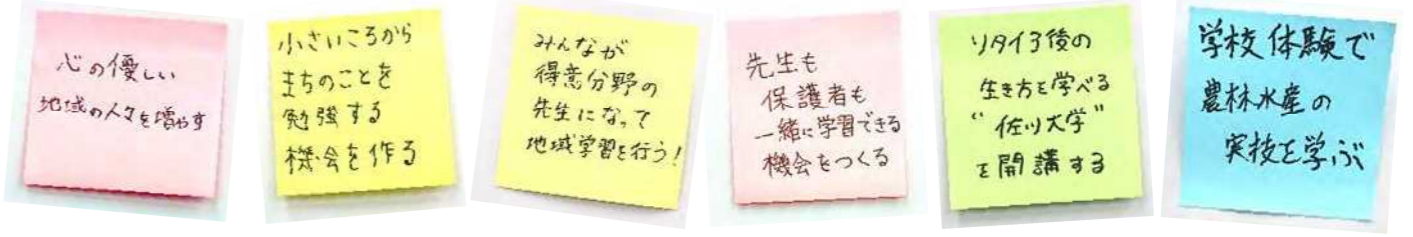 心の優しい
地域の人々を増やす
小さいころから
まちのことを
勉強する
機会を作る
みんなが
得意分野の
先生になって
地域学習を行う!
先生も
保護者も
一緒に学習できる
機会をつくる
リタイア後の
生き方を学べる
“佐川大学”
を開講する
学校体験で
農林水産の
実技を学ぶ